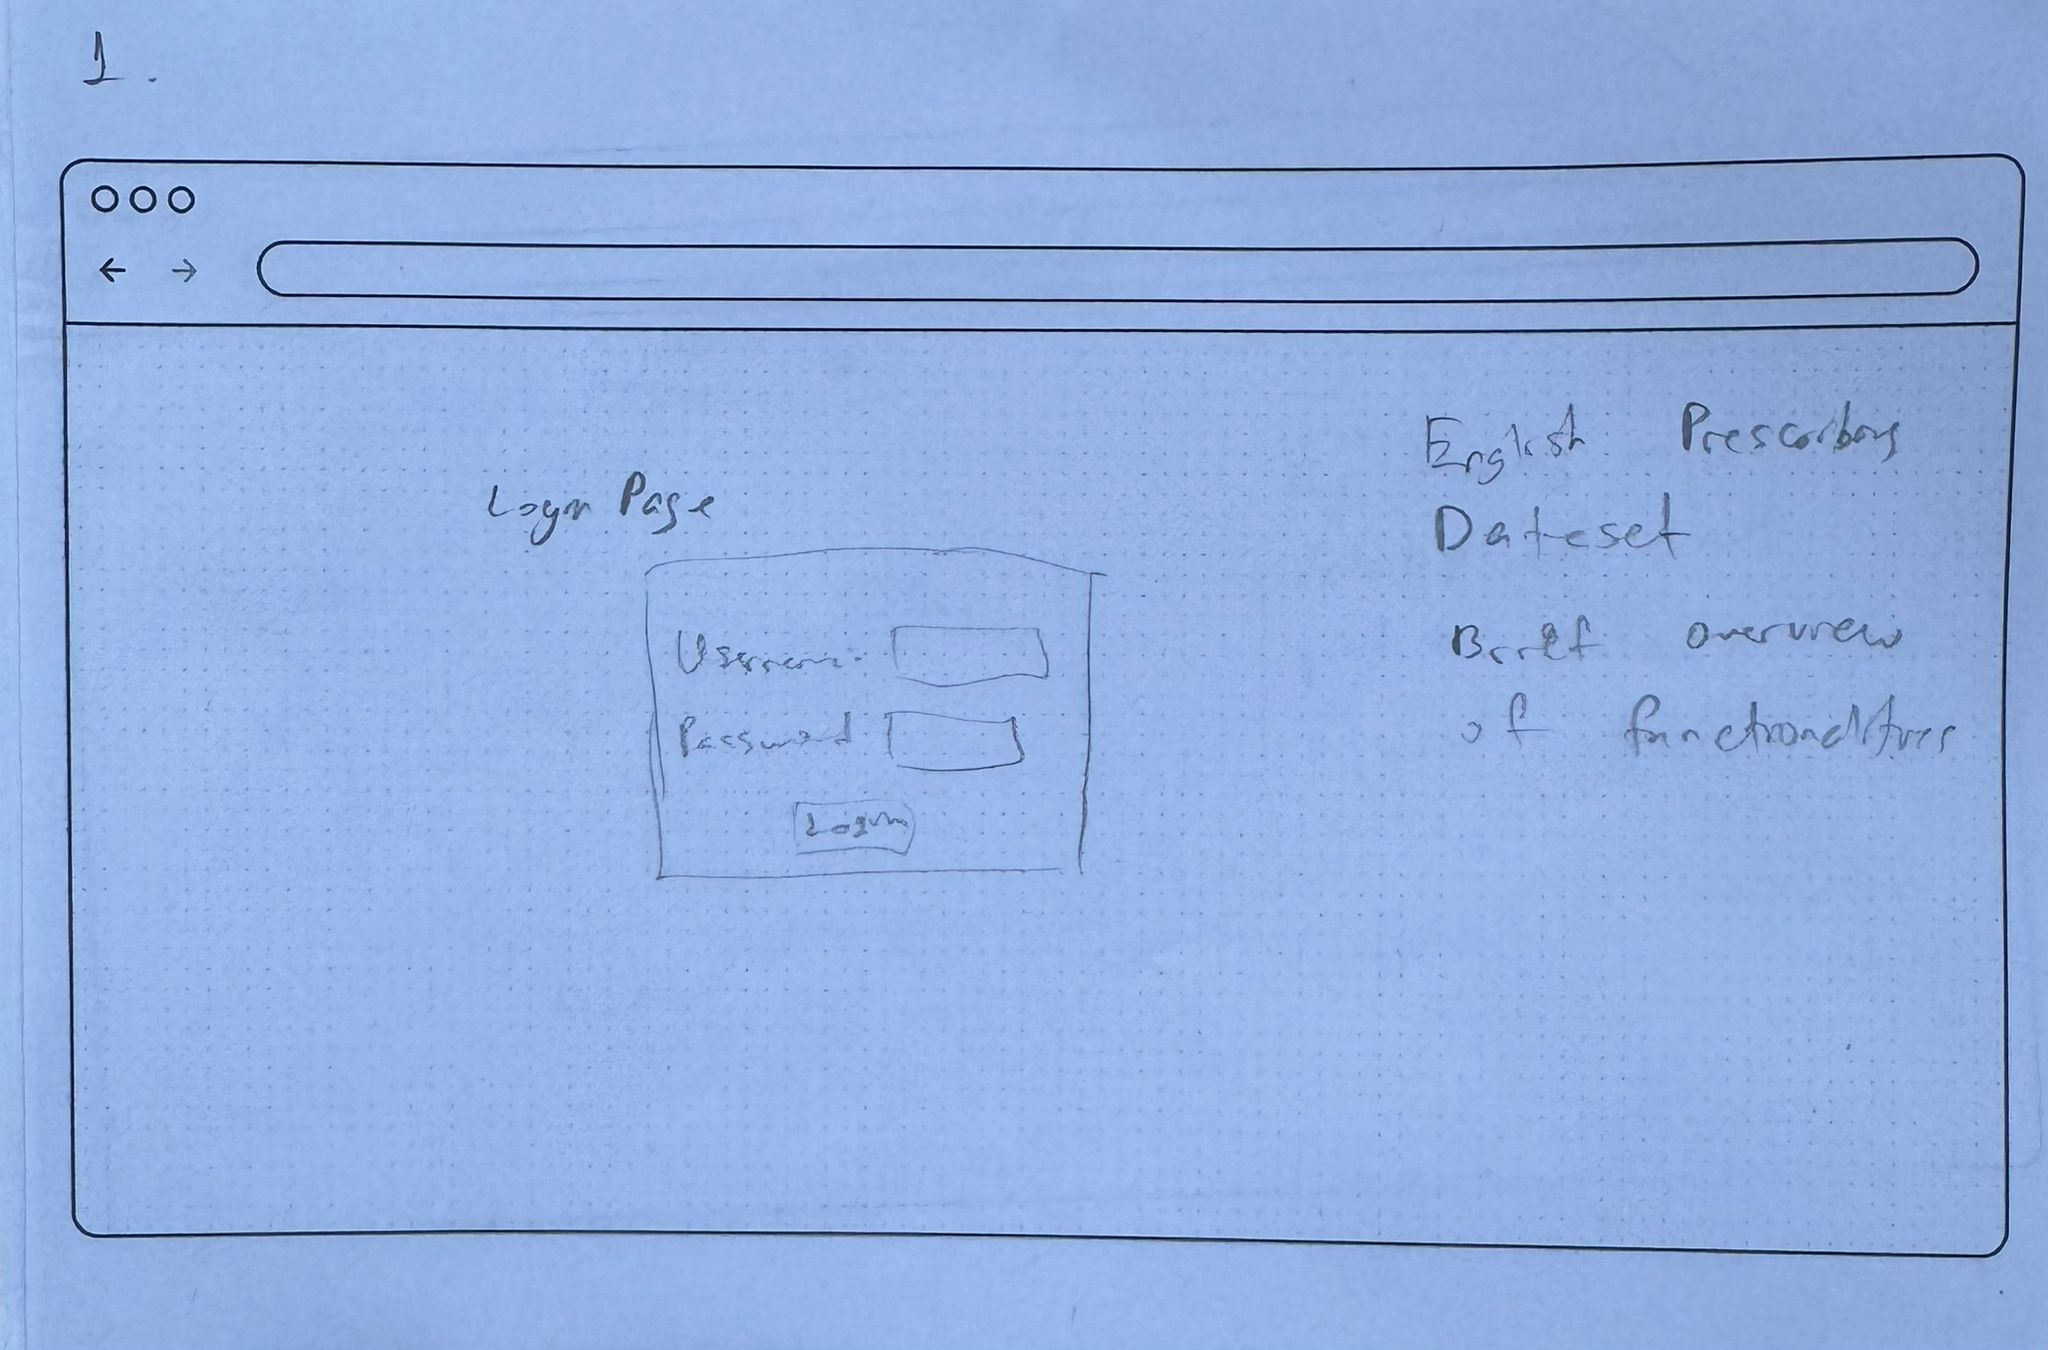 1.
Login Page
Username:
Password
Login
English Prescribing
Dataset
Brief overview
of functionalities